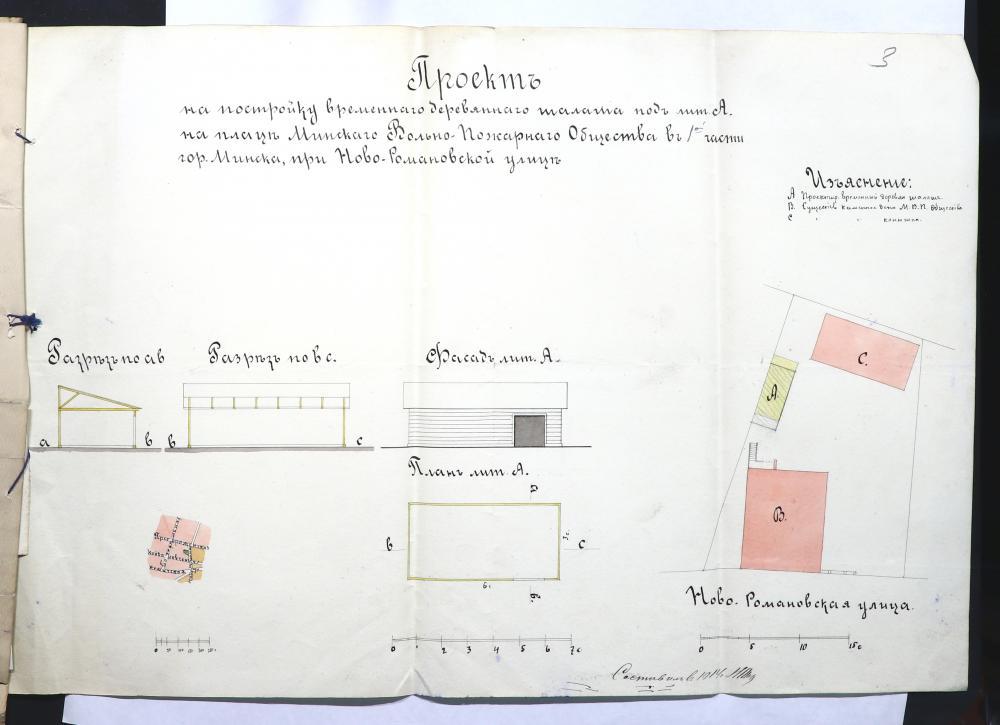 3
Проектъ
на постройку временнаго деревяннаго шалаша подъ лит. А.
на плацѣ Минскаго Вольно-Пожарнаго Общества въ 1ой части
гор. Минска, при Ново-Романовской улицѣ
Изъясненіе:
А Проектир. временный деревян. шалашъ.
В. Существ. каменное депо М. В. П. Общества
С " " конюшня.
Разрѣзъ по ав
Разрѣзъ по вс.
Фасадъ лит. А.
а в
в с
Планъ лит. А.
в с
3с.
6с
С.
А.
В.
Ново-Романовская улица.
0 1 2 3 4 5 6 7с
0 5 10 15с
Составилъ 1914